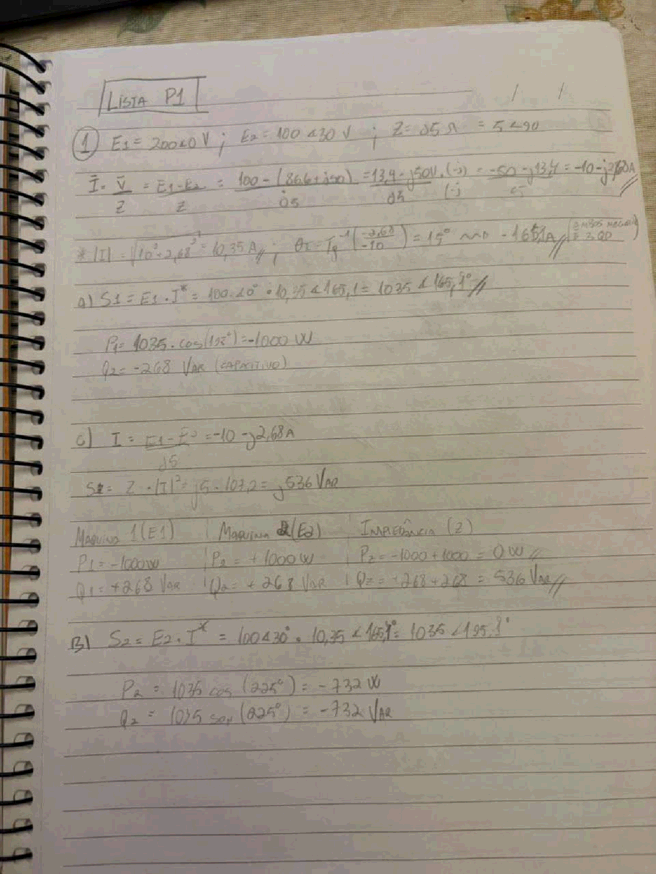 LISTA P1
1 E1 = 200∠0 V ; E2 = 100∠30 V ; Z = j5 Ω = 5∠90
I = V/Z = E1-E2/Z = 100 - (86,6 + j50)/j5 = 13,4 - j50 V . (-j)/j5 (-j) = -50 - j13,4/5 = -10 - j2,68A
* |I| = √10² + 2,68² = 10,35 A ; θI = Tg⁻¹(-2,68/-10) = 15° → -165,1A
a) S1 = E1 · I* = 100∠0° · 10,35∠165,1 = 1035∠165,1°
P1 = 1035 · cos( ) = -1000 W
Q2 = -268 VAR (CAPACITIVO)
C) I = E1 - E2/j5 = -10 - j2,68A
S = Z · |I|² = j5 · 107,2 = j536 VAR
MÁQUINA 1 (E1) | MÁQUINA 2 (E2) | IMPEDÂNCIA (Z)
P1 = -1000W | P2 = +1000W | Pz = -1000 + 1000 = 0W
Q1 = +268 VAR | Q2 = +268 VAR | Qz = +268 + 268 = 536 VAR
B) S2 = E2 · I* = 100∠30° · 10,35∠165,1° = 1035∠195,1°
P2 = 1035 cos (225°) = -732 W
Q2 = 1035 sen (225°) = -732 VAR